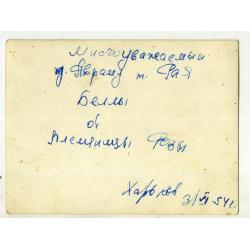 Многоуважаемый
д. Абраму т. Рая
Беллы
от
Племянницы Розы
Харьков 3/VI 54 г.